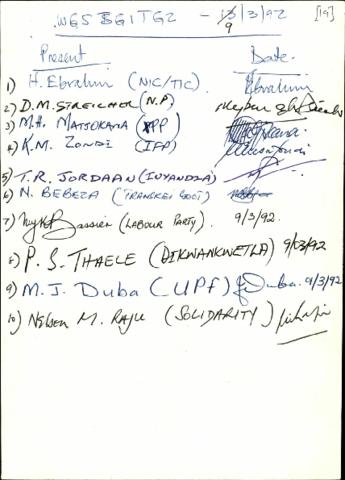 WG5 SG1 TG2 - 9/3/92 [19]
Present Date
1) H. Ebrahim (NIC/TIC). Ebrahim
2) D.M. STREICHER (N.P)
3) M.H. MATJOKANA (PP)
4) K.M. ZONDI (IFP)
5) T.R. JORDAAN (INYANDZA)
6) N. BEBEZA (TRANSKEI GOVT)
7) Bassier (LABOUR PARTY). 9/3/92
8) P. S. THAELE (DIKWANKWETLA) 9/03/92
9) M. J. Duba (UPF) Duba. 9/3/92
10) Nelson M. Raju (SOLIDARITY)